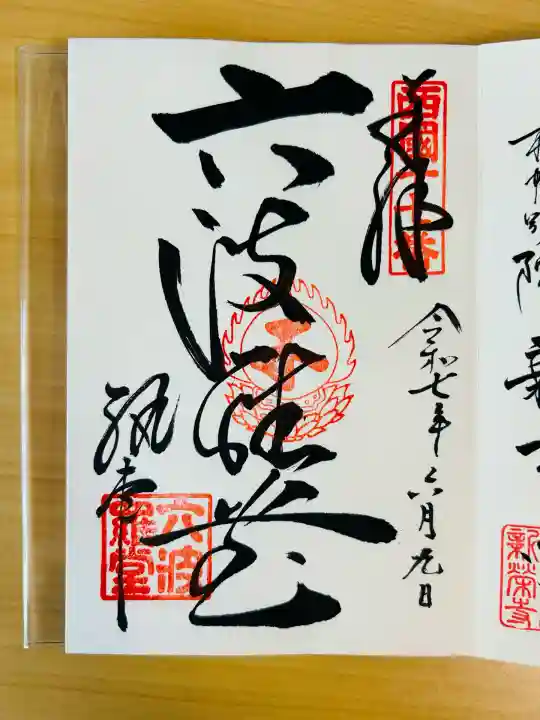 奉拝
西國十七番
令和七年六月九日
六波羅堂
六波羅堂
別院
新榮寺